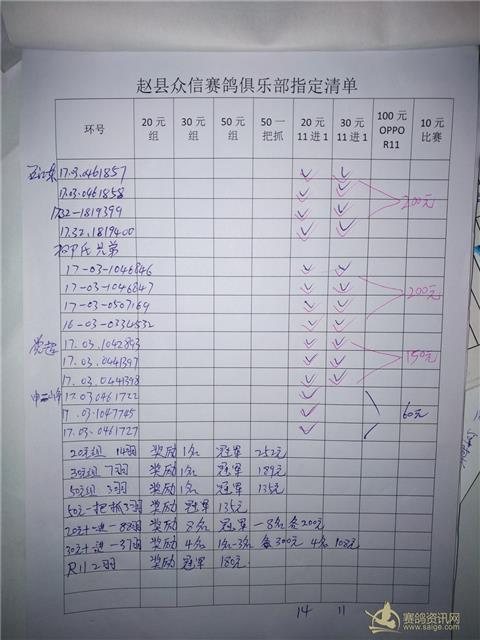 赵县众信赛鸽俱乐部指定清单
环号 20元组 30元组 50元组 50一把抓 20元11进1 30元11进1 100元OPPO R11 10元比赛
17.03.0461857
17.03.0461858
17.32-1819399 200元
17.32.1819400
氏兄弟
17-03-1046846
17-03-1046847
17-03-0507169 200元
16-03-0334532
17.03.1042893
17.03.0441397 150元
17.03.0441398
17.03.0461722
17.03.1047705 60元
17.03-0461727
20元组 14羽 奖励1名 冠军 252元
30元组 7羽 奖励1名 冠军 189元
50元组 3羽 奖励1名 冠军 135元
50元一把抓3羽 奖励 冠军 135元
20元十一进一88羽 奖励 8名 冠军-8名各200元
30元十一进一37羽 奖励 4名 1名-3名 各300元 4名 108元
R11 2羽 奖励 冠军 180元
14 11
赛鸽资讯网
www.saige.com